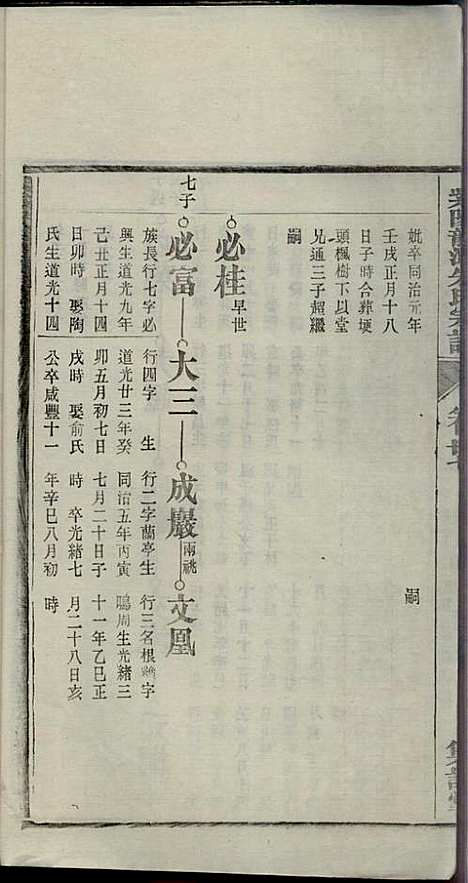 妣卒同治元年
壬戌正月十八
日子時合葬埂
頭楓樹下以堂
兄通三子超繼
嗣
嗣
必桂早世
七子
必富
大三
成巖兩祧
文凰
族長行七字必
興生道光九年
己丑正月十四
日卯時 娶陶
氏生道光十四
行四字 生
道光廿三年癸
卯五月初七日
戌時 娶俞氏
公卒咸豐十一
行二字蘭亭生
同治五年丙寅
七月二十日子
時 卒光緒七
年辛巳八月初
行三名根 字
鳴周生光緒三
十一年乙巳正
月二十八日亥
時